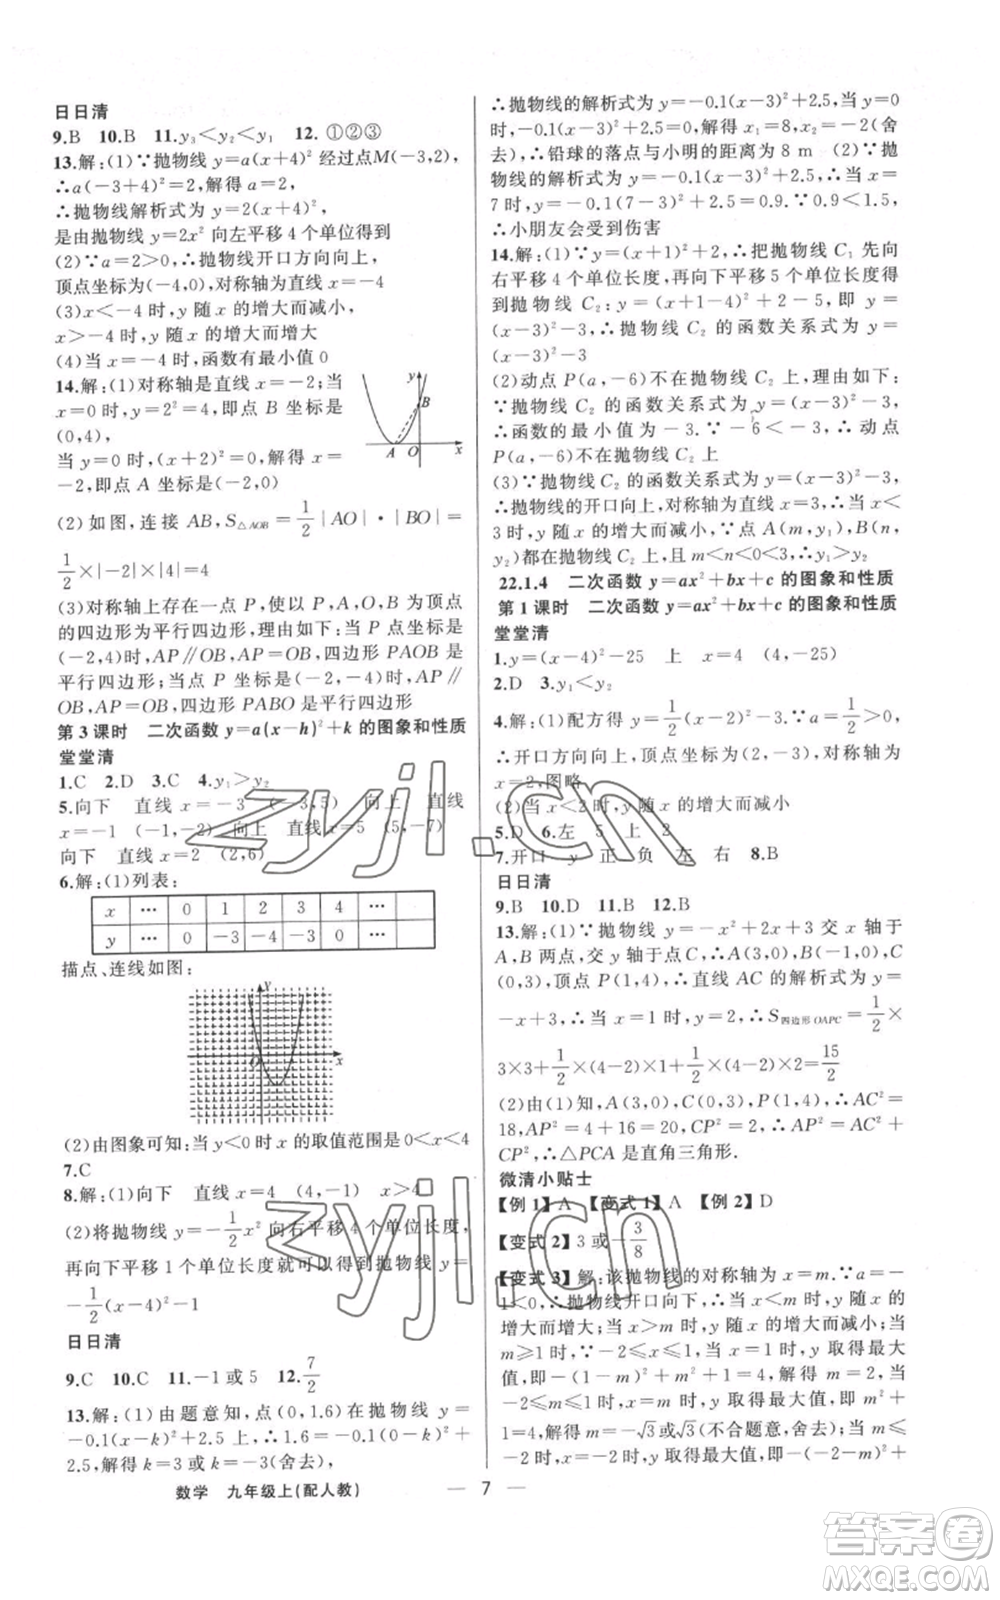 日日清
9.B 10.B 11.y₃＜y₂＜y₁ 12.①②③
13.解:(1)∵抛物线 y=a(x+4)² 经过点M(-3,2),
∴a(-3+4)²=2,解得 a=2,
∴抛物线解析式为 y=2(x+4)²,
是由抛物线 y=2x² 向左平移 4 个单位得到
(2)∵a=2＞0,∴抛物线开口方向向上,
顶点坐标为(-4,0),对称轴为直线 x=-4
(3)x＜-4 时,y 随 x 的增大而减小,
x＞-4 时,y 随 x 的增大而增大
(4)当 x=-4 时,函数有最小值 0
14.解:(1)对称轴是直线 x=-2;当
x=0 时,y=2²=4,即点 B 坐标是
(0,4),
当 y=0 时,(x+2)²=0,解得 x=
-2,即点 A 坐标是(-2,0)
y
B
A O x
(2)如图,连接 AB,S△AOB=1/2|AO|·|BO|=
1/2×|-2|×|4|=4
(3)对称轴上存在一点 P,使以 P,A,O,B 为顶点
的四边形为平行四边形,理由如下:当 P 点坐标为
(-2,4)时,AP∥OB,AP=OB,四边形 PAOB 是
平行四边形;当点 P 坐标为(-2,-4)时,AP∥
OB,AP=OB,四边形 PABO 是平行四边形
第 3 课时 二次函数 y=a(x-h)²+k 的图象和性质
堂堂清
1.C 2.D 3.C 4.y₁＞y₂
5.向下 直线 x=-3 (-3,5) 向上 直线
x=-1 (-1,-2) 向上 直线 x=5 (5,-7)
向下 直线 x=2 (2,6)
6.解:(1)列表:
x … 0 1 2 3 4 …
y … 0 -3 -4 -3 0 …
描点、连线如图:
y
O x
(2)由图象可知:当 y＜0 时 x 的取值范围是 0＜x＜4
7.C
8.解:(1)向下 直线 x=4 (4,-1) x＞4
(2)将抛物线 y=-1/2x² 向右平移 4 个单位长度,
再向下平移 1 个单位长度就可以得到抛物线 y=
-1/2(x-4)²-1
日日清
9.C 10.C 11.-1 或 5 12.7/2
13.解:(1)由题意知,点(0,1.6)在抛物线 y=
-0.1(x-k)²+2.5 上,∴1.6=-0.1(0-k)²+
2.5,解得 k=3 或 k=-3(舍去),
∴抛物线的解析式为 y=-0.1(x-3)²+2.5,当 y=0
时,-0.1(x-3)²+2.5=0,解得 x₁=8,x₂=-2(舍
去),∴铅球的落点与小明的距离为 8 m (2)∵抛
物线的解析式为 y=-0.1(x-3)²+2.5,∴当 x=
7 时,y=-0.1(7-3)²+2.5=0.9.∵0.9＜1.5,
∴小朋友会受到伤害
14.解:(1)∵y=(x+1)²+2,∴把抛物线 C₁ 先向
右平移 4 个单位长度,再向下平移 5 个单位长度得
到抛物线 C₂:y=(x+1-4)²+2-5,即 y=
(x-3)²-3,∴抛物线 C₂ 的函数关系式为 y=
(x-3)²-3
(2)动点 P(a,-6)不在抛物线 C₂ 上,理由如下:
∵抛物线 C₂ 的函数关系式为 y=(x-3)²-3,
∴函数的最小值为-3.∵-6＜-3,∴动点
P(a,-6)不在抛物线 C₂ 上
(3)∵抛物线 C₂ 的函数关系式为 y=(x-3)²-3,
∴抛物线的开口向上,对称轴为直线 x=3,∴当x＜
3 时,y 随 x 的增大而减小,∵点 A(m,y₁),B(n,
y₂)都在抛物线 C₂ 上,且 m＜n＜0＜3,∴y₁＞y₂
22.1.4 二次函数 y=ax²+bx+c 的图象和性质
第 1 课时 二次函数 y=ax²+bx+c 的图象和性质
堂堂清
1.y=(x-4)²-25 上 x=4 (4,-25)
2.D 3.y₁＜y₂
4.解:(1)配方得 y=1/2(x-2)²-3,∵a=1/2＞0,
∴开口方向向上,顶点坐标为(2,-3),对称轴为
x=2,图略
(2)当 x＜2 时,y 随 x 的增大而减小
5.D 6.左 5 上 2
7.开口 y 正 负 左 右 8.B
日日清
9.B 10.D 11.B 12.B
13.解:(1)∵抛物线 y=-x²+2x+3 交 x 轴于
A,B 两点,交 y 轴于点C,∴A(3,0),B(-1,0),C
(0,3),顶点 P(1,4),∴直线 AC 的解析式为 y=
-x+3,∴当 x=1 时,y=2,∴S四边形OAPC=1/2×
3×3+1/2×(4-2)×1+1/2×(4-2)×2=15/2
(2)由(1)知,A(3,0),C(0,3),P(1,4),∴AC²=
18,AP²=4+16=20,CP²=2,∴AP²=AC²+
CP²,∴△PCA 是直角三角形.
微清小贴士
【例 1】A 【变式 1】A 【例 2】D
【变式 2】3 或-3/8
【变式 3】解:该抛物线的对称轴为 x=m.∵a=-
1＜0,∴抛物线开口方向下,∴当 x＜m 时,y 随 x 的
增大而增大;当 x＞m 时,y 随 x 的增大而减小.当
m≥1 时,∵-2≤x≤1,当 x=1 时,y 取得最大
值,即-1+2m=4,解得 m=5/2;
-2≤m≤1 时,x=m 时,y 取得最大值,即 m²+1=
4,解得 m=-√3或√3(不合题意,舍去);当 m≤
-2 时,x=-2 时,y 取得最大值,即
数学 九年级上(配人教)
— 7 —
zyjl.cn
zyjl.cn
答案圈
MXQE.COM